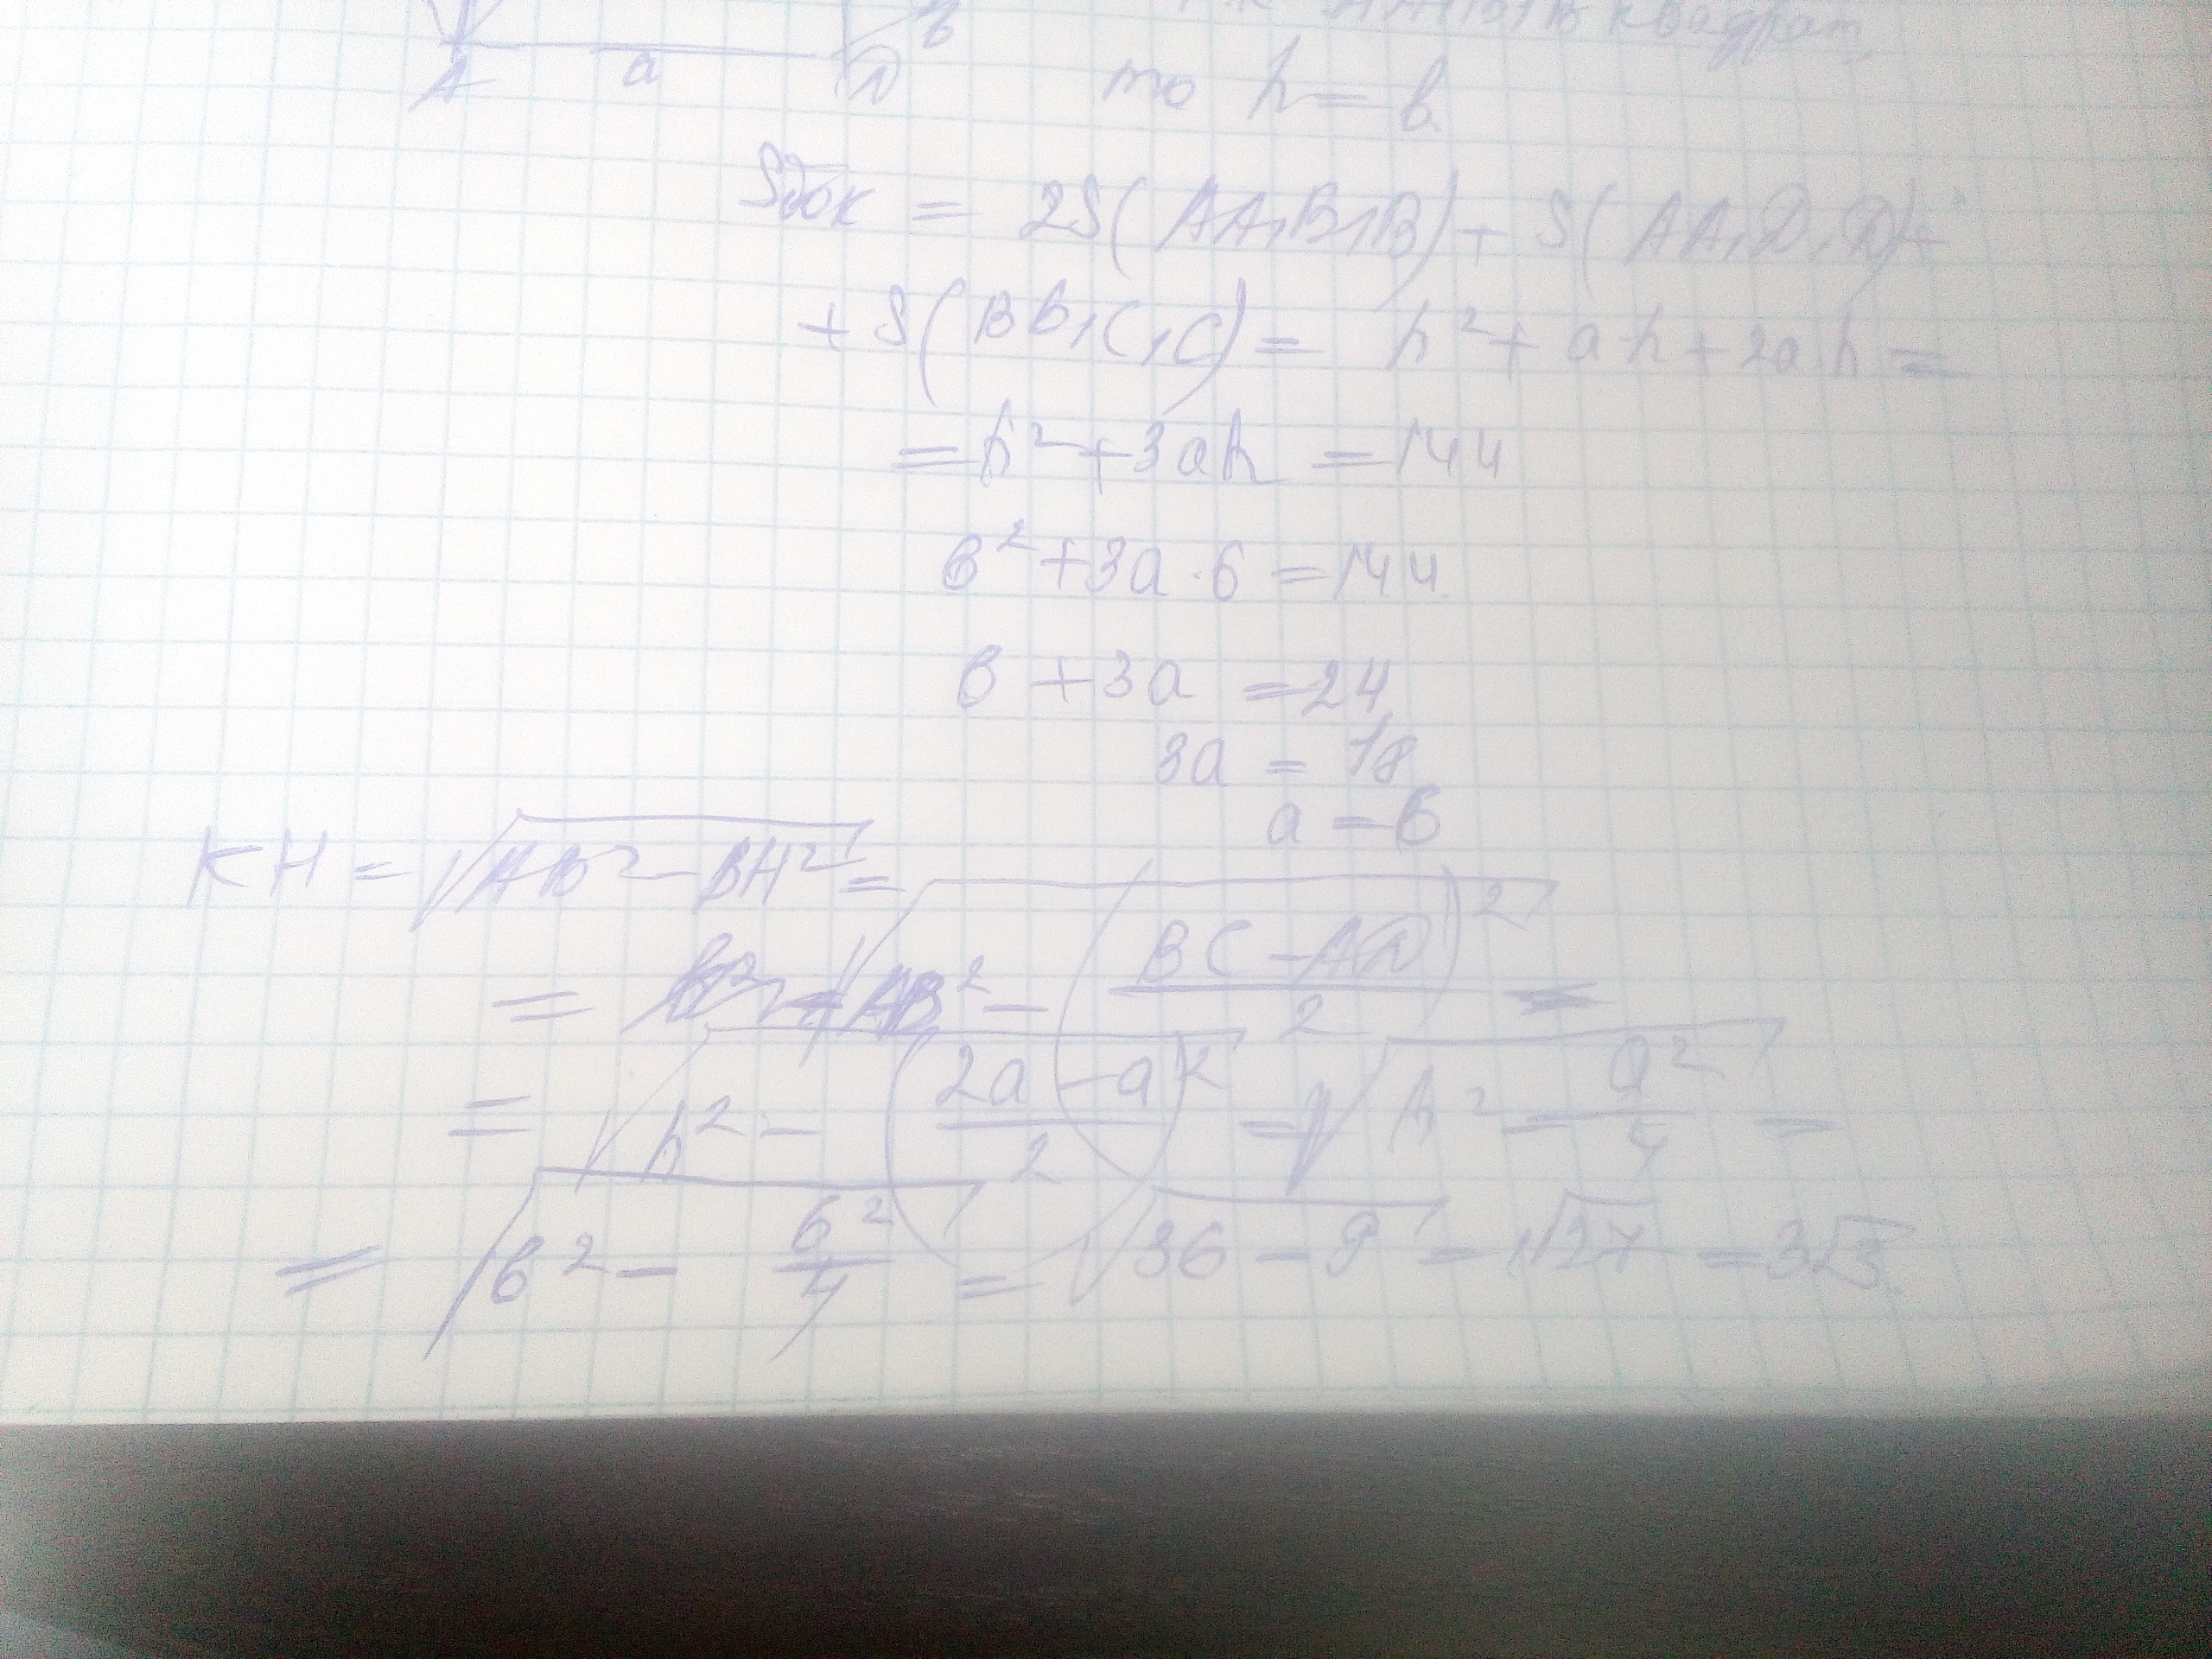 A a D в
квадрат,
то h = b
Sбок = 2S(AA₁B₁B) + S(AA₁D₁D) +
+ S(BB₁C₁C) = h² + a·h + 2ah =
= h² + 3ah = 144
6² + 3a·6 = 144
6 + 3a = 24
3a = 18
a = 6
KH = √(AB² - BH²) =
= √(AB² - ((BC - AD)/2)²) =
= √(h² - ((2a - a)/2)²) = √(h² - a²/4) =
= √(6² - 6²/4) = √(36 - 9) = √27 = 3√3